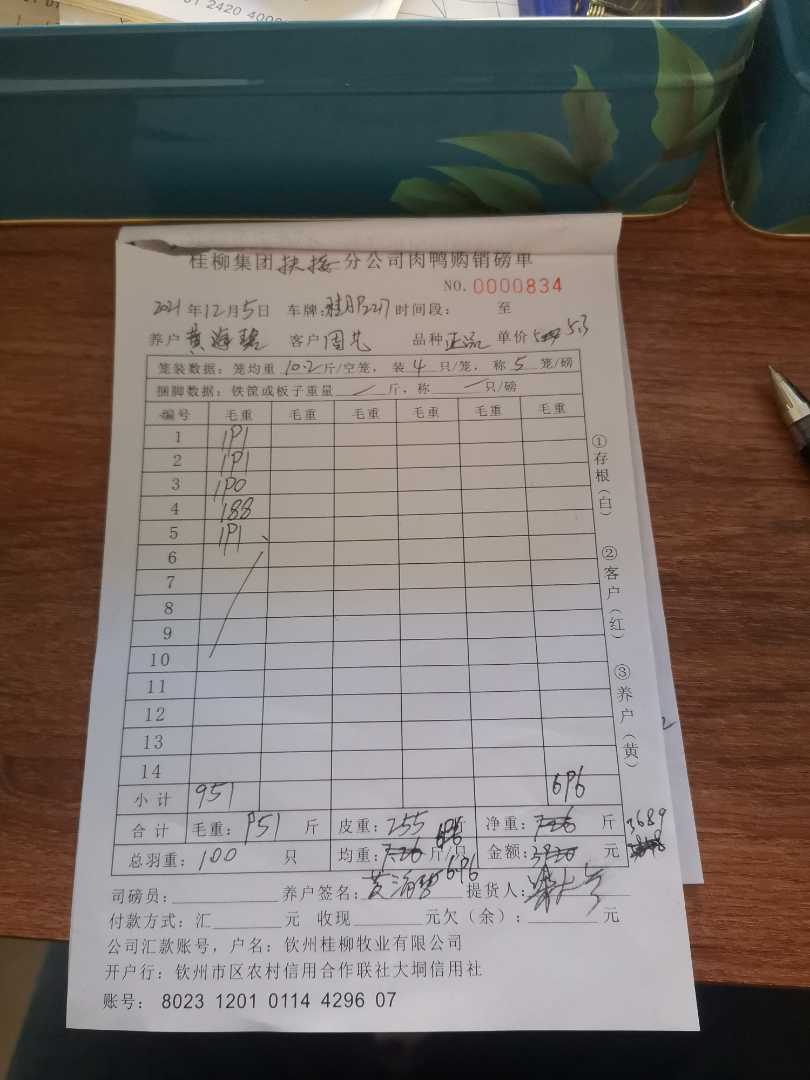 01 2420 400
桂柳集团扶接分公司肉鸭购销磅单
NO.0000834
2021年12月5日 车牌: 时间段: 至
养户黄海 客户周 品种正 单价5.3
笼装数据:笼均重10.2斤/空笼,装4只/笼,称5笼/磅
捆脚数据:铁筐或板子重量 斤,称 只/磅
编号 毛重 毛重 毛重 毛重 毛重 毛重
1 191
2 191
3 190
4 188
5 191
6
7
8
9
10
11
12
13
14
小计 951 696
合计 毛重:951 斤 皮重:255 斤 净重: 斤
总羽重:100 只 均重: 696 斤/只 金额: 元 3689
司磅员: 养户签名:黄海 696 提货人:
付款方式:汇 元 收现 元欠(余): 元
公司汇款账号,户名:钦州桂柳牧业有限公司
开户行:钦州市区农村信用合作联社大垌信用社
账号: 8023 1201 0114 4296 07
①存根(白)
②客户(红)
③养户(黄)